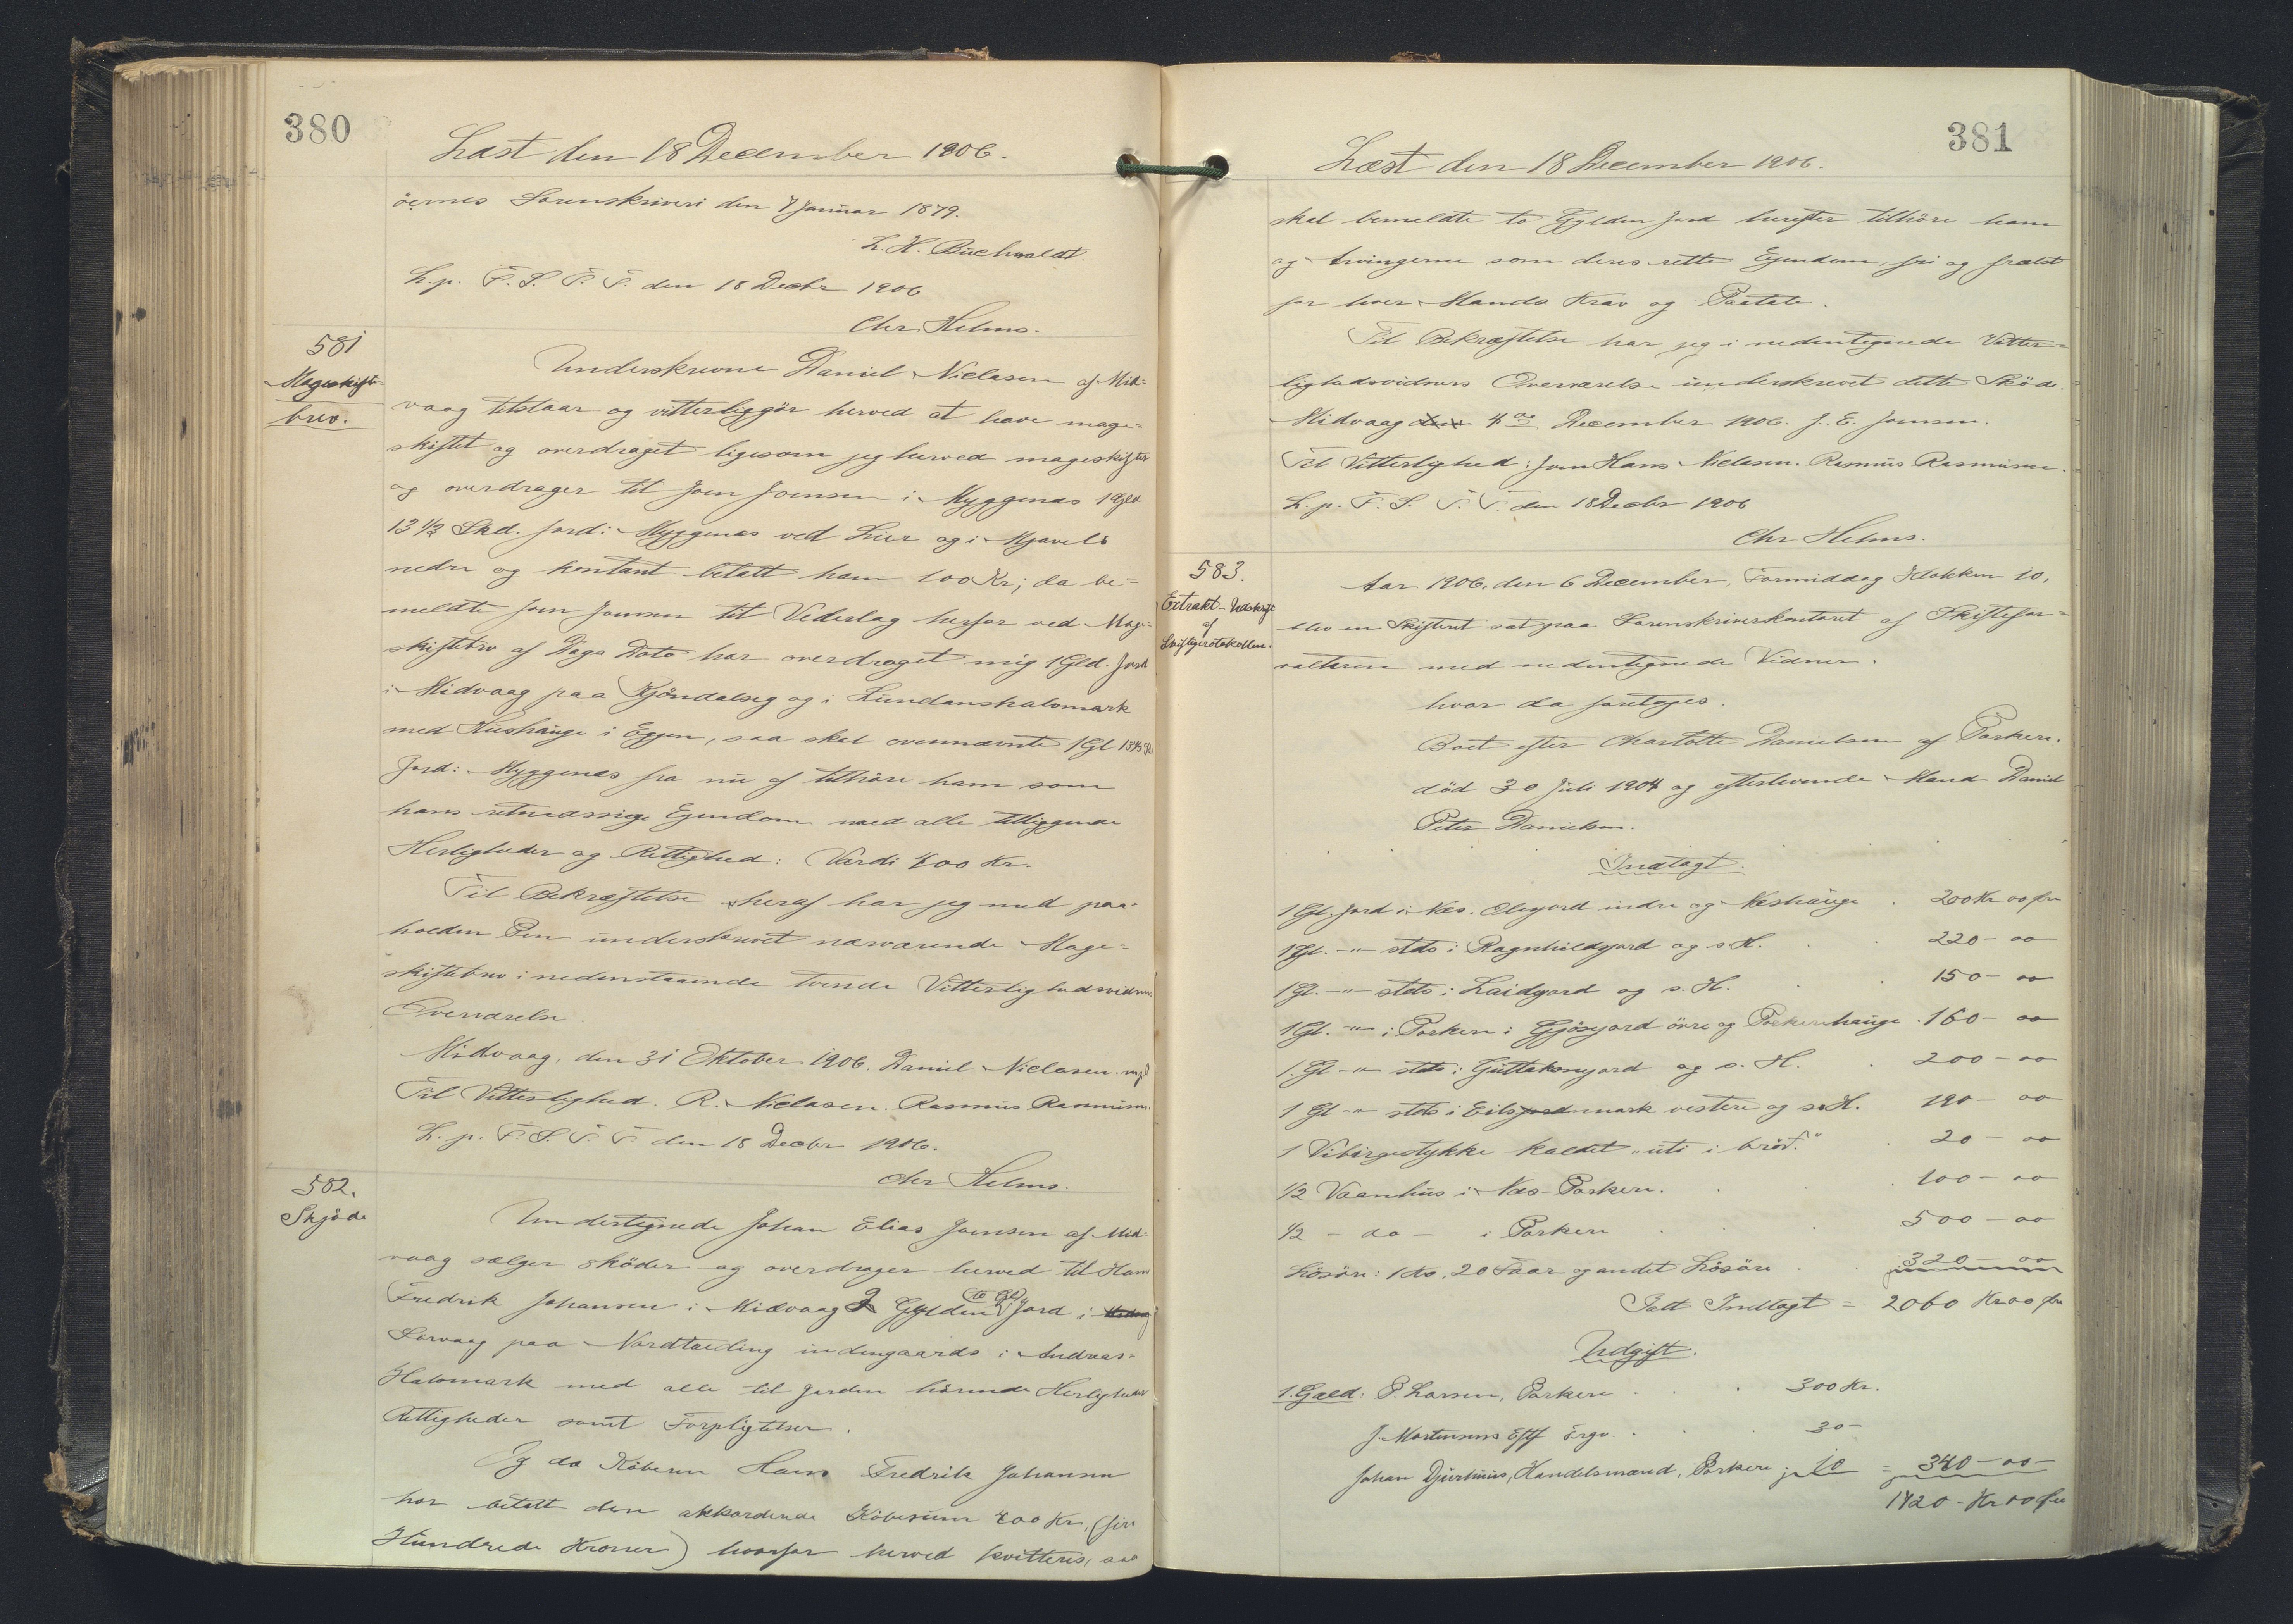 380
Læst den 18 December 1906.
öernes Sorenskriveri den 7 Januar 1879.
L. H. Buchwaldt.
L. p. F. S. T. T. den 18 Decbr 1906
Chr. Helms.
581
Mageskifte-
brev.
Underskrevne Daniel Niclasen af Mid-
vaag tilstaar og vitterliggör herved at have mage-
skiftet og overdraget ligesom jeg herved mageskifter
og overdrager til Joen Joensen i Myggenæs 1 Gld
13 1/3 Skd. Jord i Myggenæs ved Lier og i
nedre og kontant betalt ham 100 Kr; da be-
meldte Joen Joensen til Vederlag herfor ved Mage-
skiftebrev af Dags Dato har overdraget mig 1 Gld. Jord
i Midvaag paa Kjöndalseg og i Lundanshalvmark
med Hushauge i Eggen, saa skal ovennævnte 1 Gl 13 1/3 Sk
Jord i Myggenæs fra nu af tilhöre ham som
hans retmæssige Ejendom med alle tilliggende
Herligheder og Rettighed: Værdi 400 Kr.
Til Bekræftelse heraf har jeg med paa-
holden Pen underskrevet nærværende Mage-
skiftebrev i nedenstaaende tvende Vitterlighedsvidners
Overværelse.
Midvaag, den 31 Oktober 1906. Daniel Niclasen m.p.P
Til Vitterlighed. R. Niclasen. Rasmus Rasmussen.
L. p. F. S. T. T. den 18 Decbr 1906.
Chr Helms.
582.
Skjöde
Undertegnede Johan Elias Joensen af Mid-
vaag sælger sköder og overdrager herved til Hans
Fredrik Johansen i Midvaag 2 Gylden (to Gl) Jord i
Sörvaag paa Nordtælding indengaards i Andreas-
Halvmark med alle til Jorden hörende Herligheder
Rettigheder samt Forpligtelser.
Og da Köberen Hans Fredrik Johansen
har betalt den akkorderede Köbesum 400 Kr, (fire
Hundrede Kroner) hvorfor herved kvitteres, saa
381
Læst den 18 December 1906.
skal bemeldte to Gylden Jord herefter tilhöre ham
og Arvingerne som deres rette Ejendom, fri og frelst
for hver Mands Krav og Paatale.
Til Bekræftelse har jeg i nedentegnede Vitter-
lighedsvidners Overværelse underskrevet dette Sköde.
Midvaag den 4de December 1906. J. E. Joensen.
Til Vitterlighed: Joen Hans Niclasen. Rasmus Rasmussen.
L. p. F. S. T. T. den 18 Decbr 1906
Chr Helms.
583.
Extrakt-Udskrift
af
Skifteprotokollen.
Aar 1906, den 6 December, Formiddag Klokken 10,
blev en Skifteret sat paa Sorenskriverkontoret af Skiftefor-
valteren med nedentegnede Vidner.
hvor da foretoges.
Boet efter Charlotte Danielsen af Porkere.
död 30 Juli 1904 og efterlevende Mand Daniel
Peter Danielsen.
Indtægt
1 Gl. Jord i Næs. Olegjord indre og Neshauge . 200 Kr 00 öre
1 Gl. -"- stds i Ragnhildgjord og s. H. . 220 - 00
1 Gl. -"- stds i Laidgjord og s. H. . 150 - 00
1 Gl. -"- i Porkere i Gjósgjord övre og Porkerehauge . 160 - 00
1. Gl -"- stds i Guttakonujord og s. H. . 200 - 00
1 Gl -"- stds i Eilsjord mark vestere og s. H. 190 - 00
1 Vibirgestykke kaldet „uti i bröt." . 20 - 00
1/2 Vaanhus i Næs-Porkere. . 100 - 00
1/2 - do - i Porkere . 500 - 00
Lösöre: 1 Ko, 20 Faar og andet Lösöre . 320 - 00
Ialt Indtægt = 2060 Kr 00 öre
Udgift.
1. Gæld: P. Larsen, Porkere . . . 300 Kr.
J. Mortensens Eftf Trgv. . . 30 -
Johan Djurhuus, Handelsmand, Porkere 10 = 340 - 00 -
1720 - Kr 00 öre